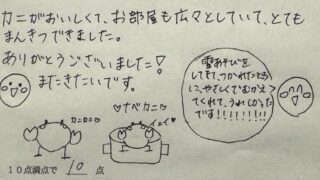 カニがおいしくて、お部屋も広々としていて、とても
まんきつできました。
ありがとうございました!
またきたいです。
♡ナベカニ♡
カニカニ♡
イェイ♡
雪あそびを
してきて、つかれたところ
に、やさしくでむかえて
くれて、うれしかった
です!!!!!!!
10点満点で 10 点